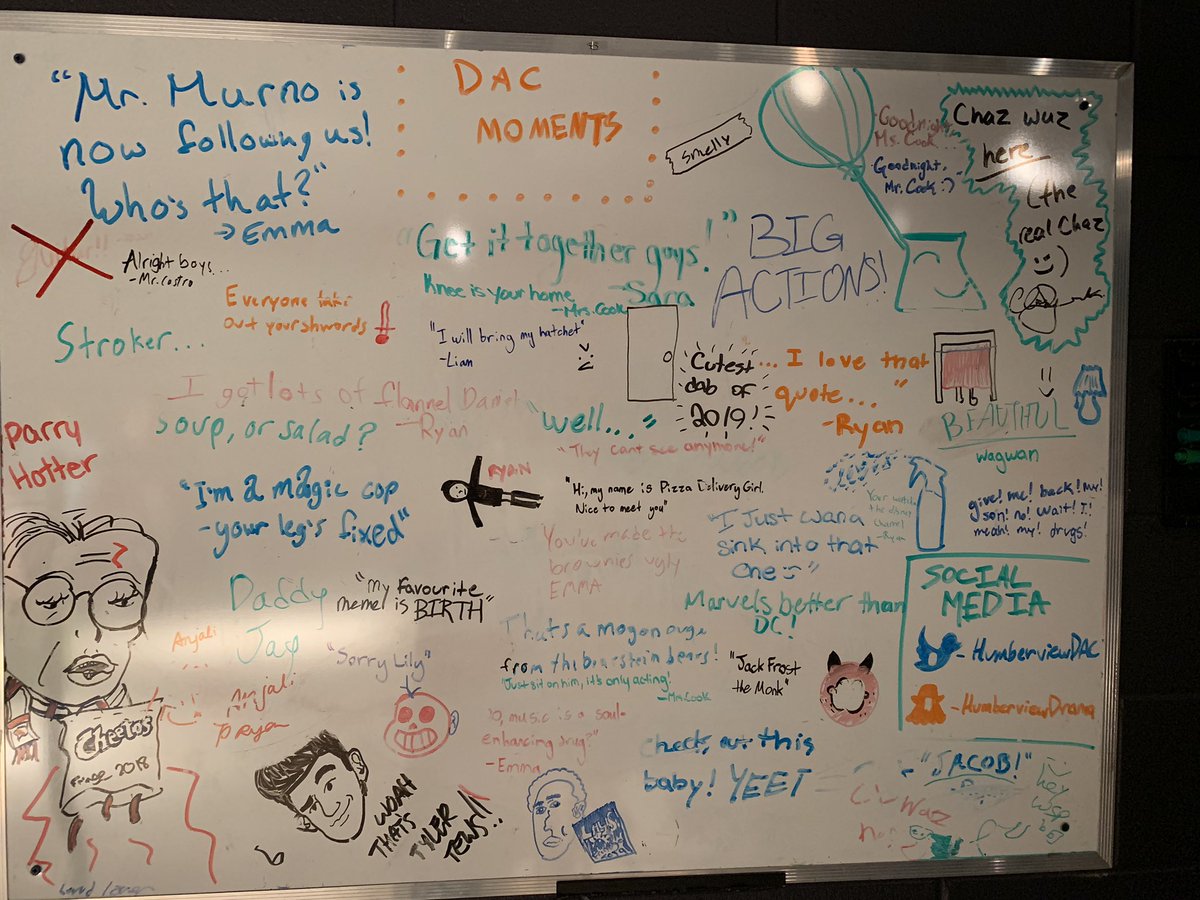 "Mr. Murno is
now following us!
Who's that?"
→ EMMA
DAC
MOMENTS
smelly
Goodnight,
Ms. Cook...
Goodnight,
Mr. Cook :)
Chaz wuz
here
(the
real Chaz
:)
Alright boys...
-Mr. Castro
"Get it together guys!"
-Sara
Knee is your home
-Mrs. Cook
BIG
ACTIONS!
Everyone
out your shwords
Stroker...
"I will bring my hatchet"
-Liam
Cutest
dab of
2019!
... I love that
quote..."
-Ryan
BEAUTIFUL
wagwan
I got lots of flannel Daniel
-Ryan
soup, or salad?
"well..."
"They cant see anymore!"
Parry
Hotter
"I'm a magic cop
-your leg's fixed"
RYAN
"Hi, my name is Pizza Delivery Girl.
Nice to meet you"
"I Just wana
sink into that
one
Your watching
the disney
channel
-Ryan
give! me! back! my!
son! no! wait! I!
meah! my! drugs!
You've made the
brownies ugly
EMMA
Daddy
Jag
"my favourite
meme! is BIRTH"
Marvels better than
DC!
SOCIAL
MEDIA
-HumberviewDAC
-HumberviewDrama
Anjali
"Sorry Lily"
Thats a
from the
bears!
"Just sit on him, it's only acting!
-Mrs Cook
"Jack Frost
the Monk"
Cheetos
2018
music is a soul-
enhancing drug?"
-Emma
check out this
baby! YEET
WOAH
THAT'S
TYLER
TEWS!!..
-"JACOB!"
Waz
hey